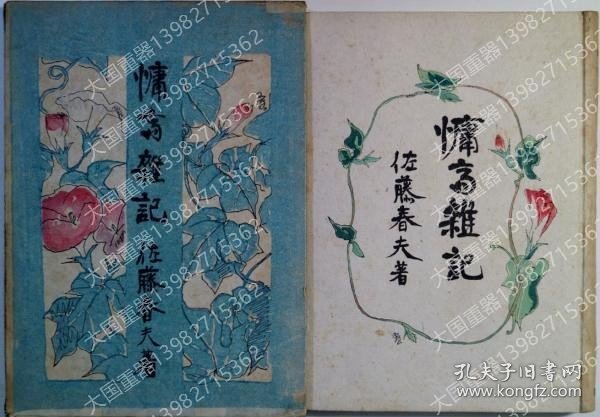 慵斎雜記
佐藤春夫著
慵斎雜記
佐藤春夫著
大国重器13982715362
大国重器13982715362
大国重器13982715362
大国重器13982715362
大国重器13982715362
大国重器13982715362
孔夫子旧书网
www.kongfz.com